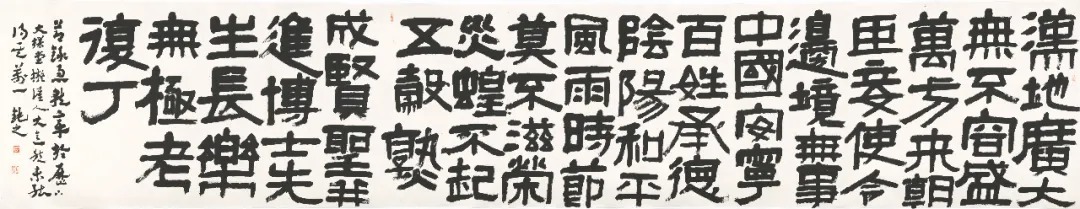 漢地廣大
無不容盛
萬方来朝
臣妾使令
邊境無事
中國安寧
百姓承德
陰陽和平
風雨時節
莫不滋榮
災蝗不起
五穀熟
成賢聖并
進博士先
生長樂
無極老
復丁